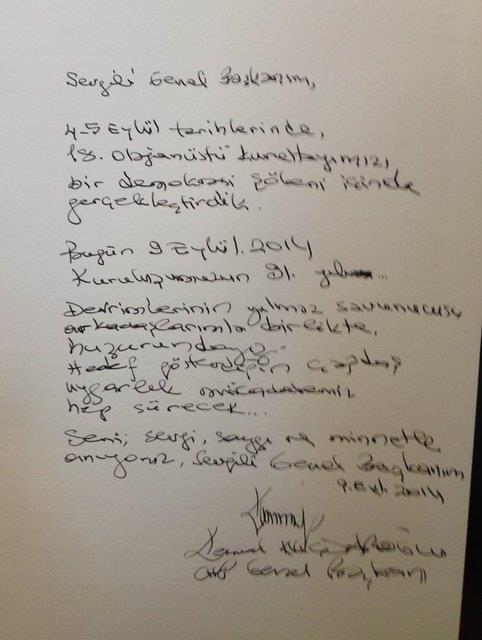 Sevgili Genel Başkanım,
4-5 Eylül tarihlerinde,
18. Olağanüstü Kurultayımızı,
bir demokrasi şöleni içinde
gerçekleştirdik.
Bugün 9 Eylül. 2014
Kuruluşumuzun 91. yılı...
Devrimlerinin yılmaz savunucusu
arkadaşlarımla birlikte,
huzurundayız
Hedef gösterdiğin çağdaş
uygarlık mücadelemiz
hep sürecek...
Seni; sevgi, saygı ve minnetle
anıyoruz, Sevgili Genel Başkanım
9. Eyl. 2014
Kemal Kılıçdaroğlu
CHP Genel Başkanı